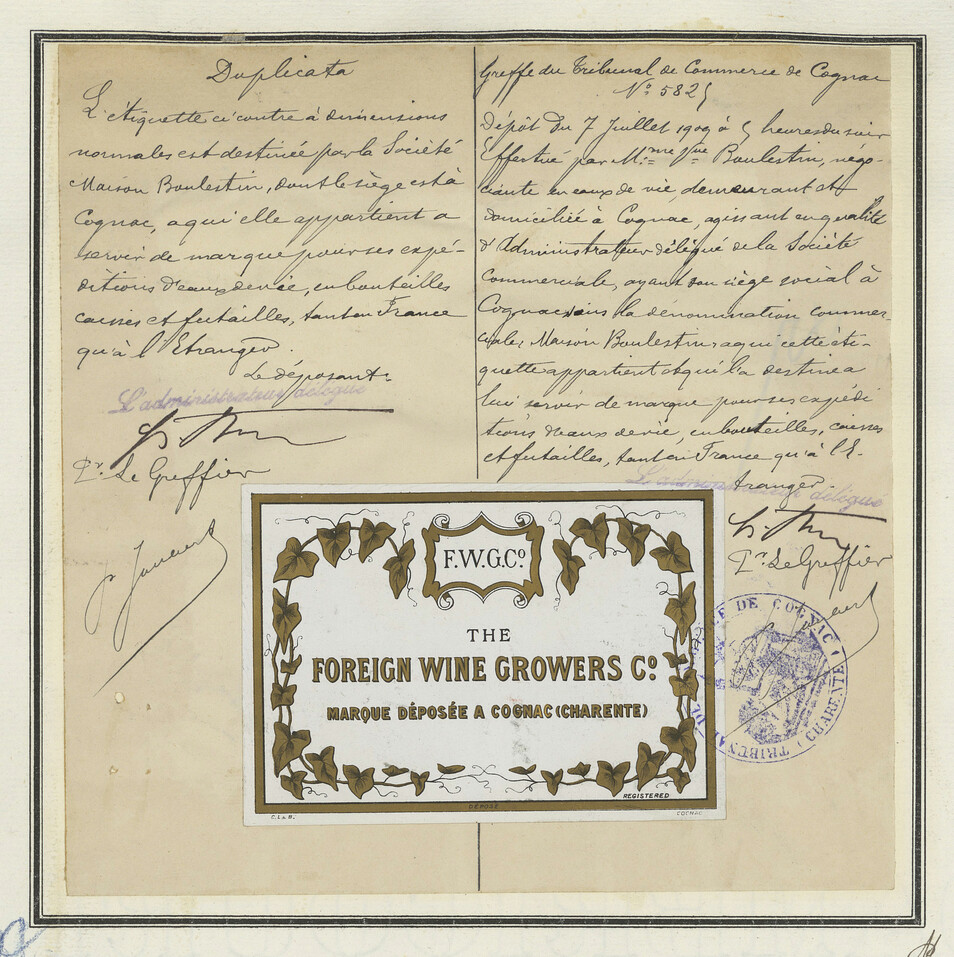 Duplicata
L'étiquette ci contre à dimensions
normales est destinée par la Société
Maison Boulestin, dont le siège est à
Cognac, a qui elle appartient a
servir de marque pour ses expé-
ditions d'eaux de vie, en bouteilles
caisses et futailles, tant en France
qu'à l'Etranger.
Le déposant.
L'administrateur délégué
Pr. Le Greffier
Greffe du Tribunal de Commerce de Cognac
N° 5825
Dépôt du 7 Juillet 1909 à 5 heures du soir
Effectué par Mme Vve Boulestin, négo-
ciante en eaux de vie, demeurant et
domiciliée à Cognac, agissant en qualité
d'Administrateur délégué de la Société
Commerciale, ayant son siège social à
Cognac sous la dénomination commer
ciale: Maison Boulestin, a qui cette éti-
quette appartient et qui l'a destinée a
lui servir de marque pour ses expédi
tions d'eaux de vie, en bouteilles, caisses
et futailles, tant en France qu'à l'E-
tranger.
L'administrateur délégué
Pr. Le Greffier
F.W.G.Co.
THE
FOREIGN WINE GROWERS Co.
MARQUE DÉPOSÉE A COGNAC (CHARENTE)
REGISTERED
DÉPOSÉ
C.L & B.
COGNAC
TRIBUNAL DE COGNAC (CHARENTE)